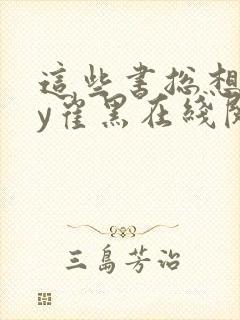 這些書総想
y雀黑在綫
三島芳治